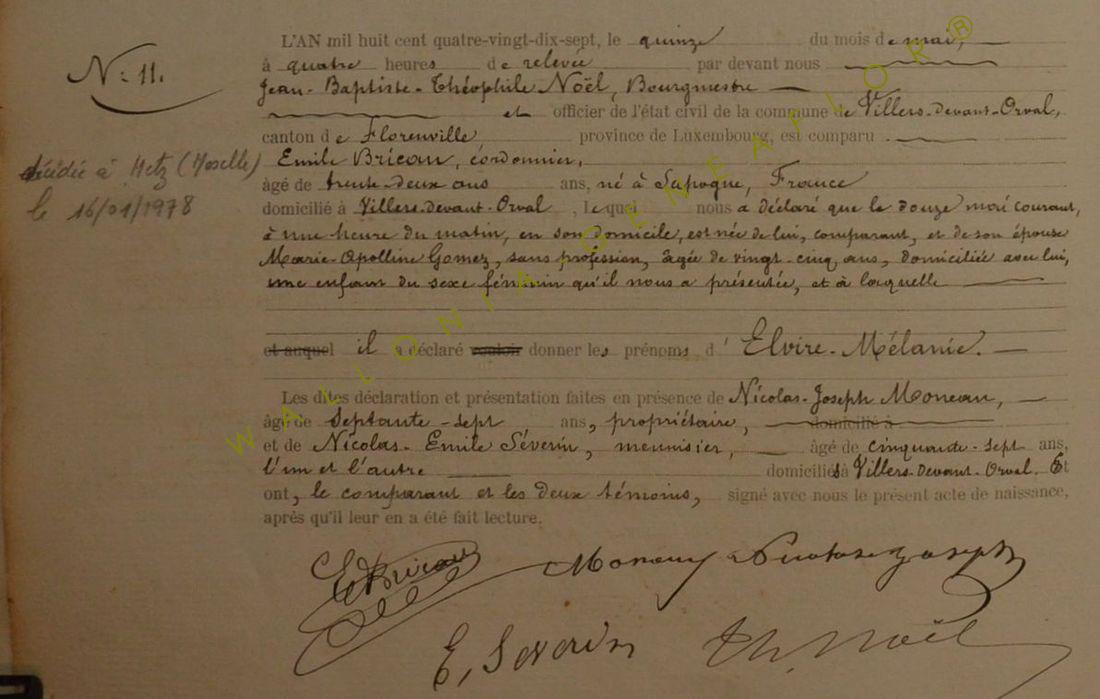 L'AN mil huit cent quatre-vingt-dix-sept, le quinze du mois de mai,
N: 11.
à quatre heures de relevée par devant nous
Jean-Baptiste-Théophile Noël, Bourgmestre
et officier de l'état civil de la commune de Villers-Devant-Orval,
canton de Florenville province de Luxembourg, est comparu
Emile Bricau, cordonnier,
décédée à Metz (Moselle)
le 16/01/1978
âgé de trente-deux ans ans, né à Sapogne, France
domicilié à Villers-Devant-Orval, lequel nous a déclaré que le douze mai courant,
à une heure du matin, en son domicile, est née de lui, comparant, et de son épouse
Marie-Apolline Gomez, sans profession, âgée de vingt-cinq ans, domiciliée avec lui,
une enfant du sexe féminin qu'il nous a présentée, et à laquelle
et auquel il a déclaré vouloir donner les prénoms d'Elvire-Mélanie.
Les dites déclaration et présentation faites en présence de Nicolas-Joseph Moneau,
âgé de septante-sept ans, propriétaire, domicilié à
et de Nicolas-Emile Séverin, meunisier, âgé de cinquante-sept ans,
l'un et l'autre domiciliés à Villers-Devant-Orval. Et
ont, le comparant et les deux témoins, signé avec nous le présent acte de naissance,
après qu'il leur en a été fait lecture.
E Bricau
Moneau Nicolas Joseph
E, Severin
Th. Noël
WALLONIA GENEAFLOR®